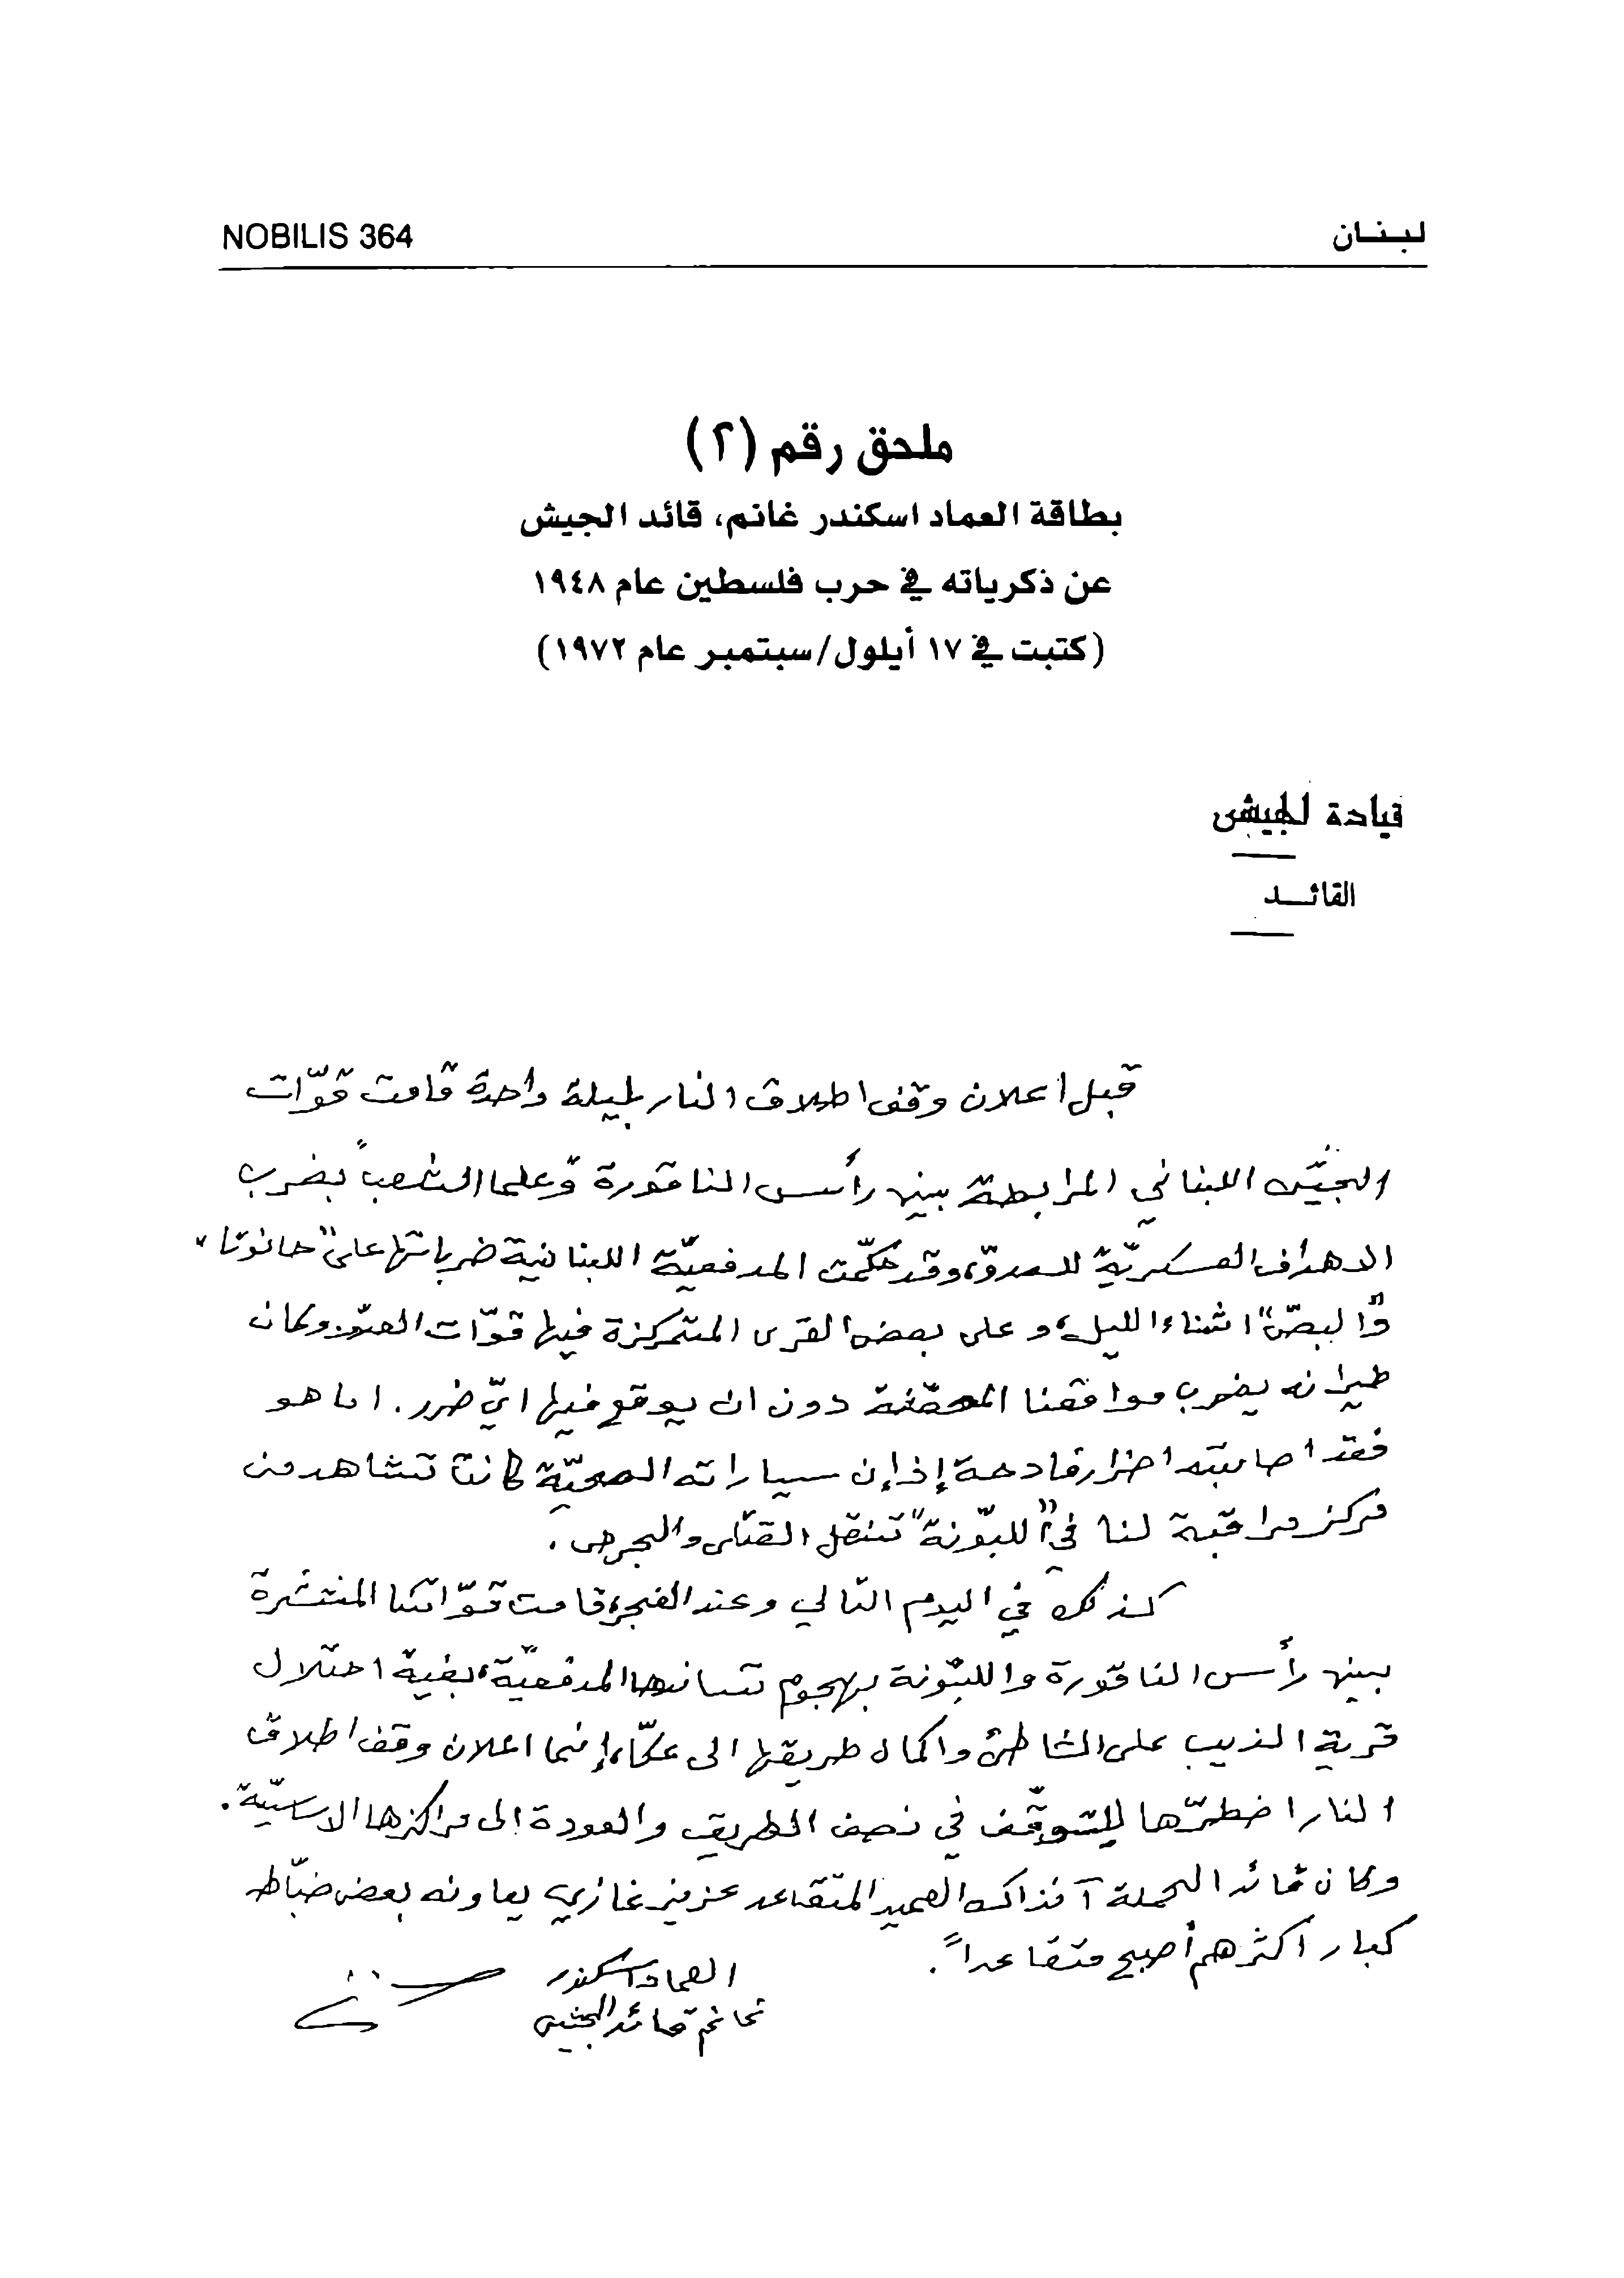 NOBILIS 364
لبنان
ملحق رقم (٢)
بطاقة العماد اسكندر غانم، قائد الجيش
عن ذكرياته في حرب فلسطين عام ١٩٤٨
(كتبت في ١٧ أيلول/سبتمبر عام ١٩٧٢)
قيادة الجيش
القائـد
قبل اعلان وقف اطلاق النار بليلة واحدة قامت قوّات
الجيش اللبناني المرابطة بين رأس الناقورة و"علما الشعب" بضرب
الاهداف العسكريّة للعدوّ، وقد حكّمت المدفعيّة اللبنانية ضرباتها على "حانوتا"
و"البصّة" اثناء الليل، وعلى بعض القرى المتمركزة فيها قوّات العدوّ. وكان
طيرانه يضرب مواقعنا المحصّنة دون ان يوقع فيها ايّ ضرر. اما هو
فقد اصابته اضرار فادحة إذ إن سياراته الصحيّة كانت تشاهد من
مركز مراقبة لنا في "اللبّونة" تنقل القتلى والجرحى.
كذلك في اليوم التالي وعند الفجر، قامت قوّاتنا المنتشرة
بين رأس الناقورة واللبّونة بهجوم تساندها المدفعيّة، بغية احتلال
قرية الذيب على الشاطئ واكمال طريقها الى عكّا، إنما اعلان وقف اطلاق
النار اضطرّها للتوقّف في نصف الطريق والعودة الى مراكزها الاساسيّة.
وكان قائد الحملة آنذاك العميد المتقاعد عزيز غازي يعاونه بعض ضبّاط
كبار اكثرهم أصبح متقاعداً.
العماد اسكندر
غانم قائد الجيش